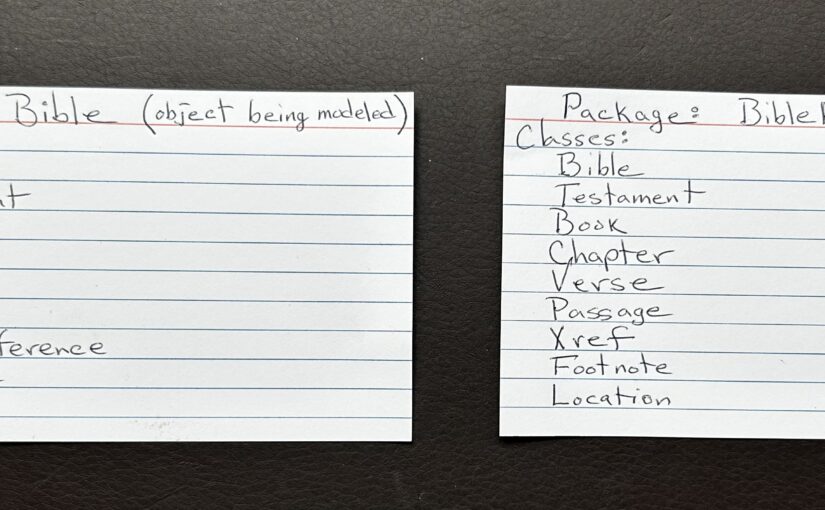 Bible (object being modeled)
Package:
Classes:
Bible
Testament
Book
Chapter
Verse
Passage
Xref
Footnote
Location